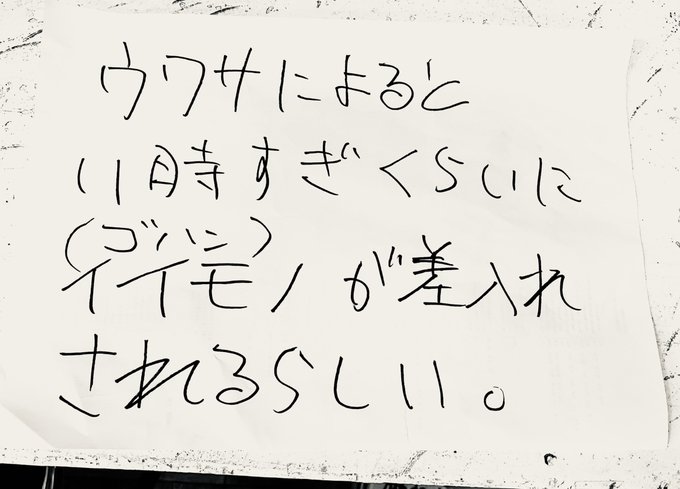 ウワサによると
11時すぎくらいに
(ゴハン)
イイモノが差入れ
されるらしい。